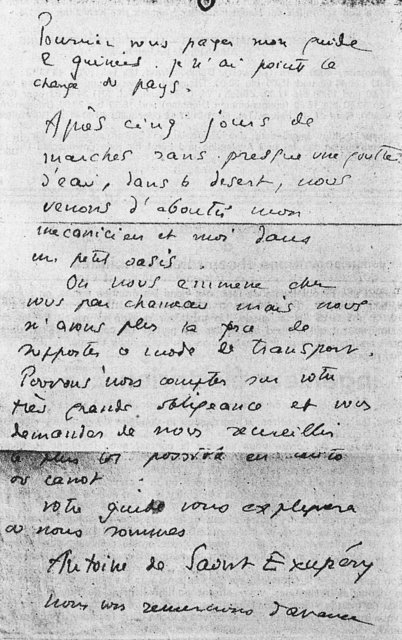 Pourriez vous payer mon guide
2 guinées. je n'ai point la
change du pays.
Après cinq jours de
marches sans presque une goutte
d'eau, dans le desert, nous
venons d'aboutir mon
mecanicien et moi dans
un petit oasis
On nous emmene chez
vous par chameau mais nous
n'avons plus la force de
supporter ce mode de transport.
Pouvons nous compter sur votre
très grande obligeance et vous
demander de nous recueillir
le plus tôt possible en auto
ou canot.
votre guide vous expliquera
où nous sommes
Antoine de Saint Exupéry
nous vous remercions d'avance